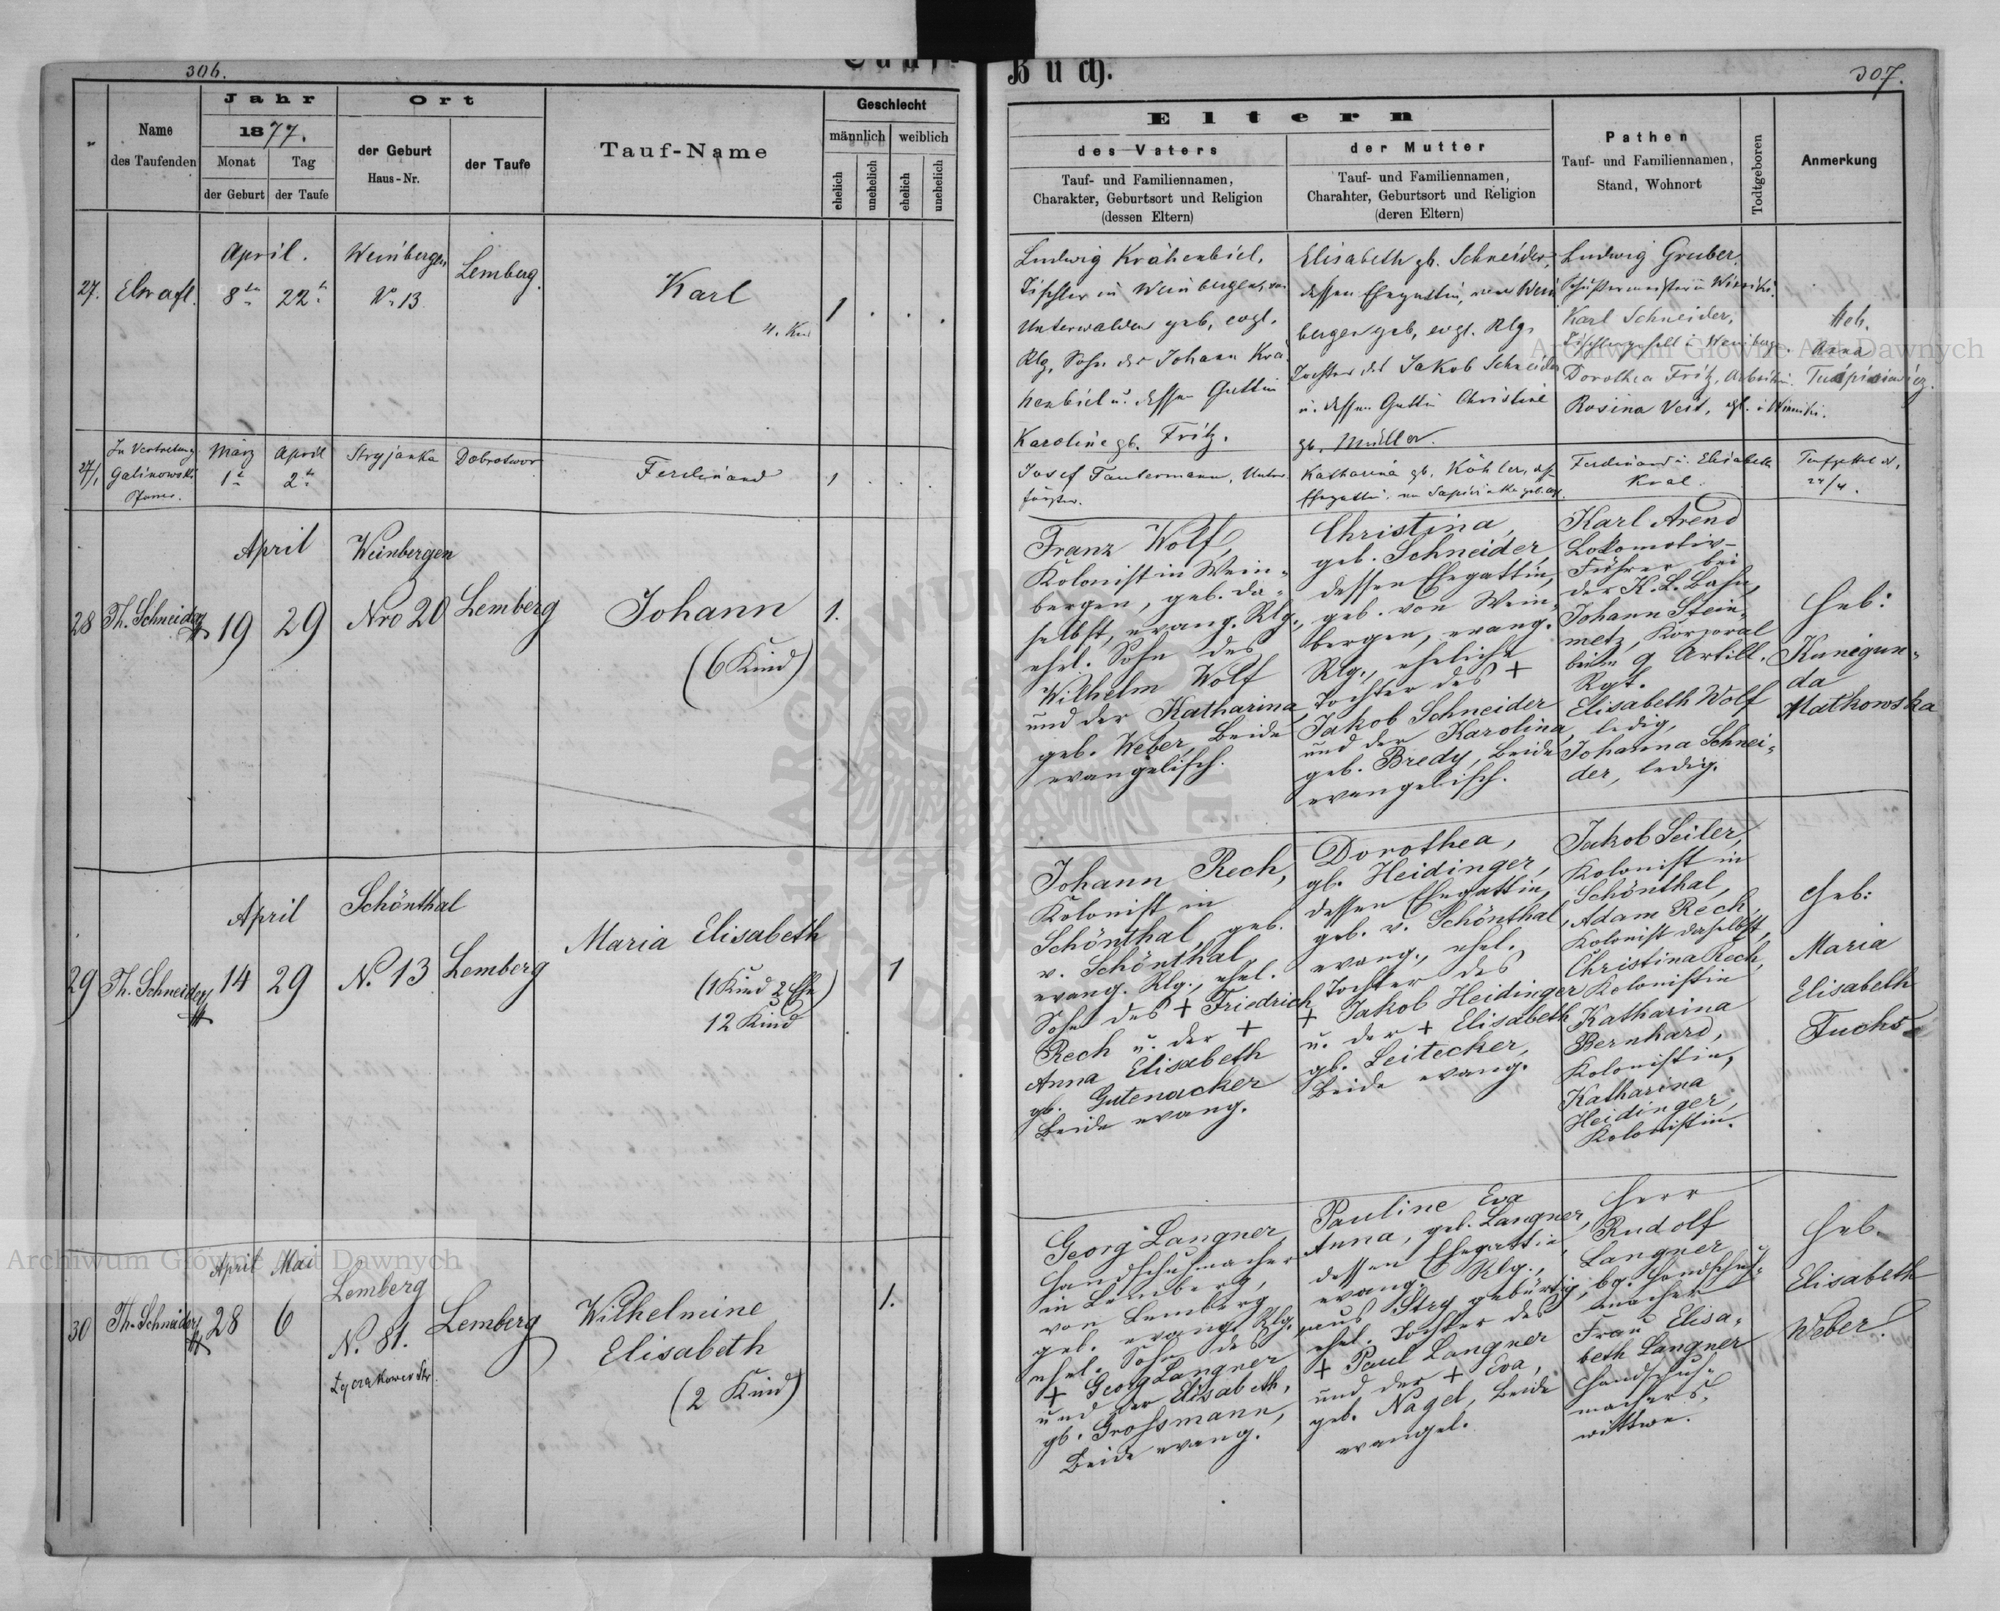 306.
Tauf-
Buch.
307.
Name
des Taufenden
Jahr
1877.
Monat
Tag
der Geburt
der Taufe
Ort
der Geburt
Haus-Nr.
der Taufe
Tauf-Name
Geschlecht
männlich
weiblich
ehelich
unehelich
ehelich
unehelich
Eltern
des Vaters
Tauf- und Familiennamen,
Charakter, Geburtsort und Religion
(dessen Eltern)
der Mutter
Tauf- und Familiennamen,
Charakter, Geburtsort und Religion
(deren Eltern)
Pathen
Tauf- und Familiennamen,
Stand, Wohnort
Todtgeboren
Anmerkung
27.
April.
8
22
Weinbergen
No 13
Lemberg.
Karl
4. Kind
1 . . .
Ludwig Krähenbiel,
Tischler in Weinbergen, von
Unterwalden geb, evgl.
Rlg, Sohn des Johann Krä
henbiel u. dessen Gattin
Karoline gb. Fritz.
Elisabeth gb. Schneider,
dessen Ehegattin, von Wein
bergen geb, evgl. Rlg.
Tochter des Jakob Schneider
u. dessen Gattin Christine
gb. Müller.
Ludwig Gruber,
Schustermeister in Winniki.
Karl Schneider,
Tischlergesell i Weinbergen.
Dorothea Fritz,
Rosina Veit, i Winniki.
Heb.
Anna
27/1
In Vertretung
Galinowski
Pfarrer.
März
1
April
2
Stryjanka
Dobrotwor
Ferdinand
1 . . .
Josef Tautermann, Unter
förster.
Katharina gb. Köhler,
Ehegattin
Ferdinand u. Elisabeth
Kral.
28
Th. Schneider
April
19
29
Weinbergen
Nro 20
Lemberg
Johann
(6 Kind)
1.
Franz Wolf,
Kolonist in Wein-
bergen, geb. da-
selbst, evang. Rlg.,
ehel. Sohn des
Wilhelm Wolf
und der Katharina,
geb. Weber, Beide
evangelisch.
Christina,
geb. Schneider,
dessen Ehegattin,
geb. von Wein-
bergen, evang.
Rlg., eheliche
Tochter des +
Jakob Schneider
und der Karolina,
geb. Bredy, Beide
evangelisch.
Karl Arend
Lokomotiv-
Führer bei
der K. L. Bahn,
Johann Stein-
metz, Korporal
beim 9 Artill.
Rgt.
Elisabeth Wolf
ledig,
Johanna Schnei-
der, ledig.
Heb:
Kunegun-
da
Matkowska
29
Th. Schneider
April
14
29
Schönthal
No. 13
Lemberg
Maria Elisabeth
(1 Kind 2 Ehe)
12 Kind
1
Johann Rech,
Kolonist in
Schönthal, geb.
v. Schönthal,
evang. Rlg., ehel.
Sohn des + Friedrich
Rech u. der +
Anna Elisabeth
gb. Gutenacker
Beide evang.
Dorothea,
gb. Heidinger,
dessen Ehegattin,
geb. v. Schönthal,
evang., ehel.
Tochter des
+ Jakob Heidinger
u. der + Elisabeth
gb. Leitecker,
Beide evang.
Jakob Seiler,
Kolonist in
Schönthal,
Adam Rech,
Kolonist daselbst,
Christina Rech,
Kolonistin
Katharina
Bernhard,
Kolonistin,
Katharina
Heidinger,
Kolonistin.
Heb:
Maria
Elisabeth
Fuchs
30
Th. Schneider
April
28
Mai
6
Lemberg
No. 81.
Lyczakower Str.
Lemberg
Wilhelmine
Elisabeth
(2 Kind)
1.
Georg Langner,
Handschuhmacher
in Lemberg,
von Lemberg
geb. evang. Rlg.
ehel. Sohn des
+ Georg Langner
und der Elisabeth,
gb. Grossmann,
Beide evang.
Pauline Eva
Anna, geb. Langner,
dessen Ehegattin,
evang. Rlg.,
aus Stry gebürtig,
ehel. Tochter des
+ Paul Langner
und der + Eva,
geb. Nagel, Beide
evangel.
Herr
Rudolf
Langner
bg. Handschuh-
macher
Frau Elisa-
beth Langner
Handschuh-
machers-
wittwe.
Heb.
Elisabeth
Weber.
Archiwum Główne Akt Dawnych
Archiwum Główne Akt Dawnych